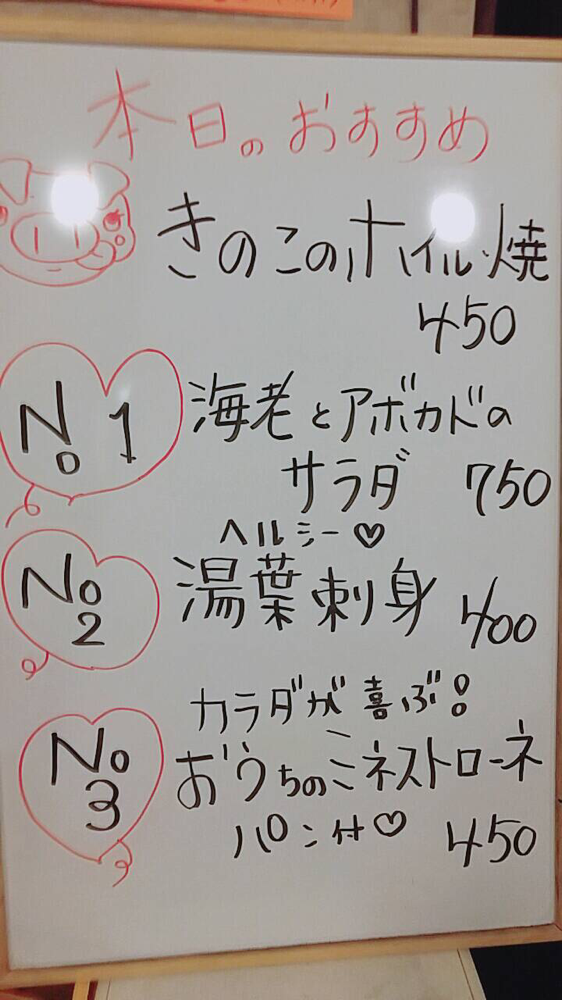 本日のおすすめ
きのこのホイル焼
450
No 1
海老とアボカドの
サラダ 750
No 2
ヘルシー♡
湯葉刺身 400
No 3
カラダが喜ぶ!
おうちのミネストローネ
パン付♡ 450